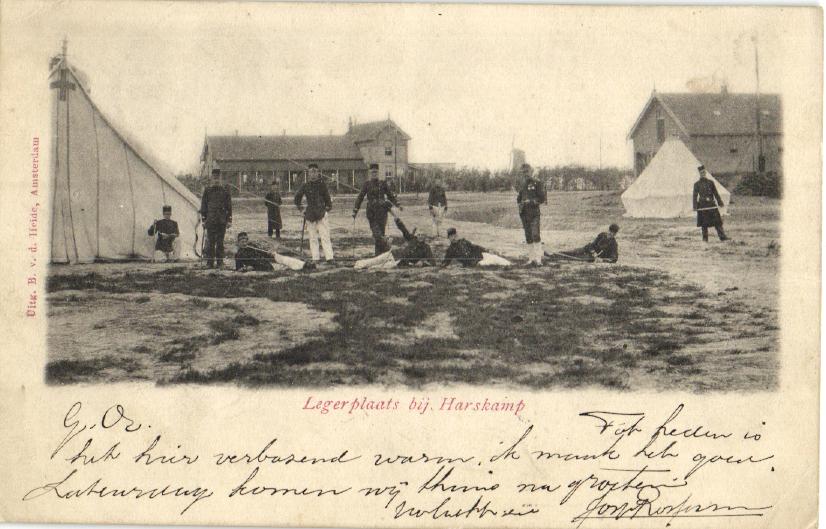 Uitg. B. v. d. Heide, Amsterdam
Legerplaats bij. Harskamp
G. Oz.
Tot heden is
het hier verbazend warm. ik maak het goed.
Saturday komen wij thuis na groeten